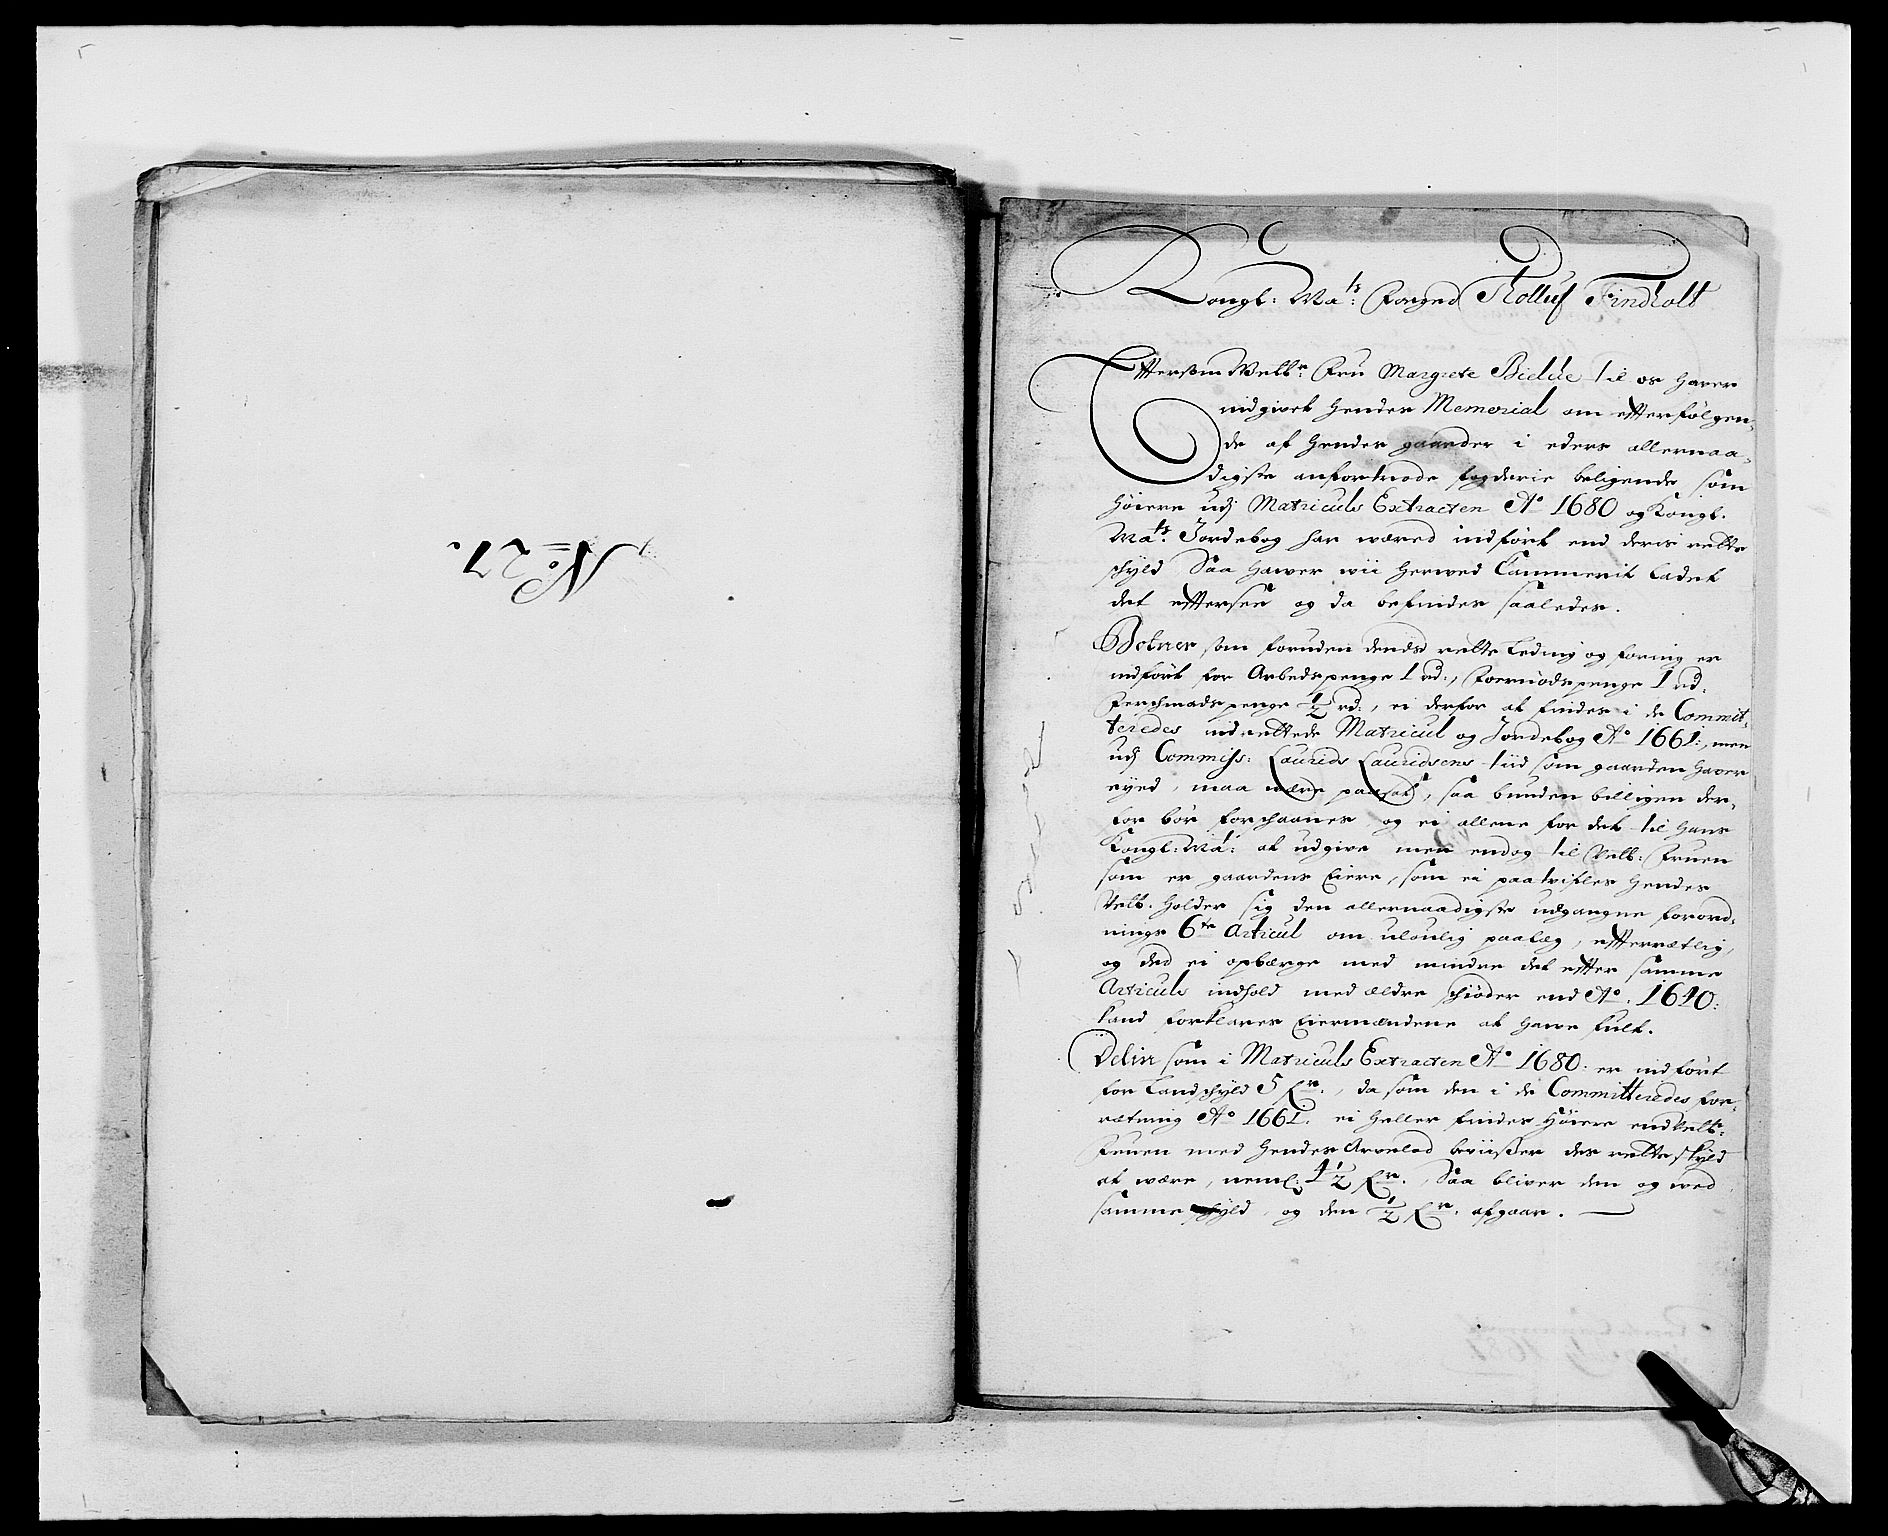 No 27.
Kongl: Ma.ts: Foeged Tolluf Findholt
Effterßom Welb.e Fru Margrete Bielcke til os hafver
indgivet hendes Memorial om effterfølgen-
de af hendes gaarder i eders allernaa-
digste anfortrode fogderie beligende som
høiere udj Matriculs Extracten Ao 1680 og Kongl.
Ma.ts Jordebog har wæred indført end deris rette
schyld Saa hawer wii herwed Cammerit ladet
det effterseе og da befindes saaledes.
Botner som foruden dends rette Leding og foring er
indført for Arbedspenge 1 rd:, Foernødspenge 1 rd:
Ferchmadspenge ½ rd:, ei derfor at findes i de Commit-
teredes indrettede Matricul og Jordebog Ao 1661:, men
udj Commiss: Laurids Lauridsens tiid som gaarden haver
eyed, maa være paasat, saa bunden billigen der-
for bør forschaanes og ei allene for det til Hans
Kongl: Ma.t: at udgive men endog til Velb: Fruen
som er gaardens Eiere, som ei paatvifles hendes
Velb. holder sig den allernaadigste udgangne forord-
nings 6te Articul om uloulig paalæg, effterrætlig,
og ded ei opbærge med mindre det effter samme
Articuls indhold med ældre schiøder end Ao. 1640:
kand forklares Eiermændene at hawe fult.
Delin som i Matriculs Extracten Ao 1680: er indført
for Landschyld 5 , da som den i de Committeredes for-
rætning Ao 1661. ei heller findes høiere end Velb:
Fruen med hendes Arvelod beviißer des rette skyld
at være, neml: 4½ , Saa bliver den og wed
samme schyld, og den ½ afgaar.